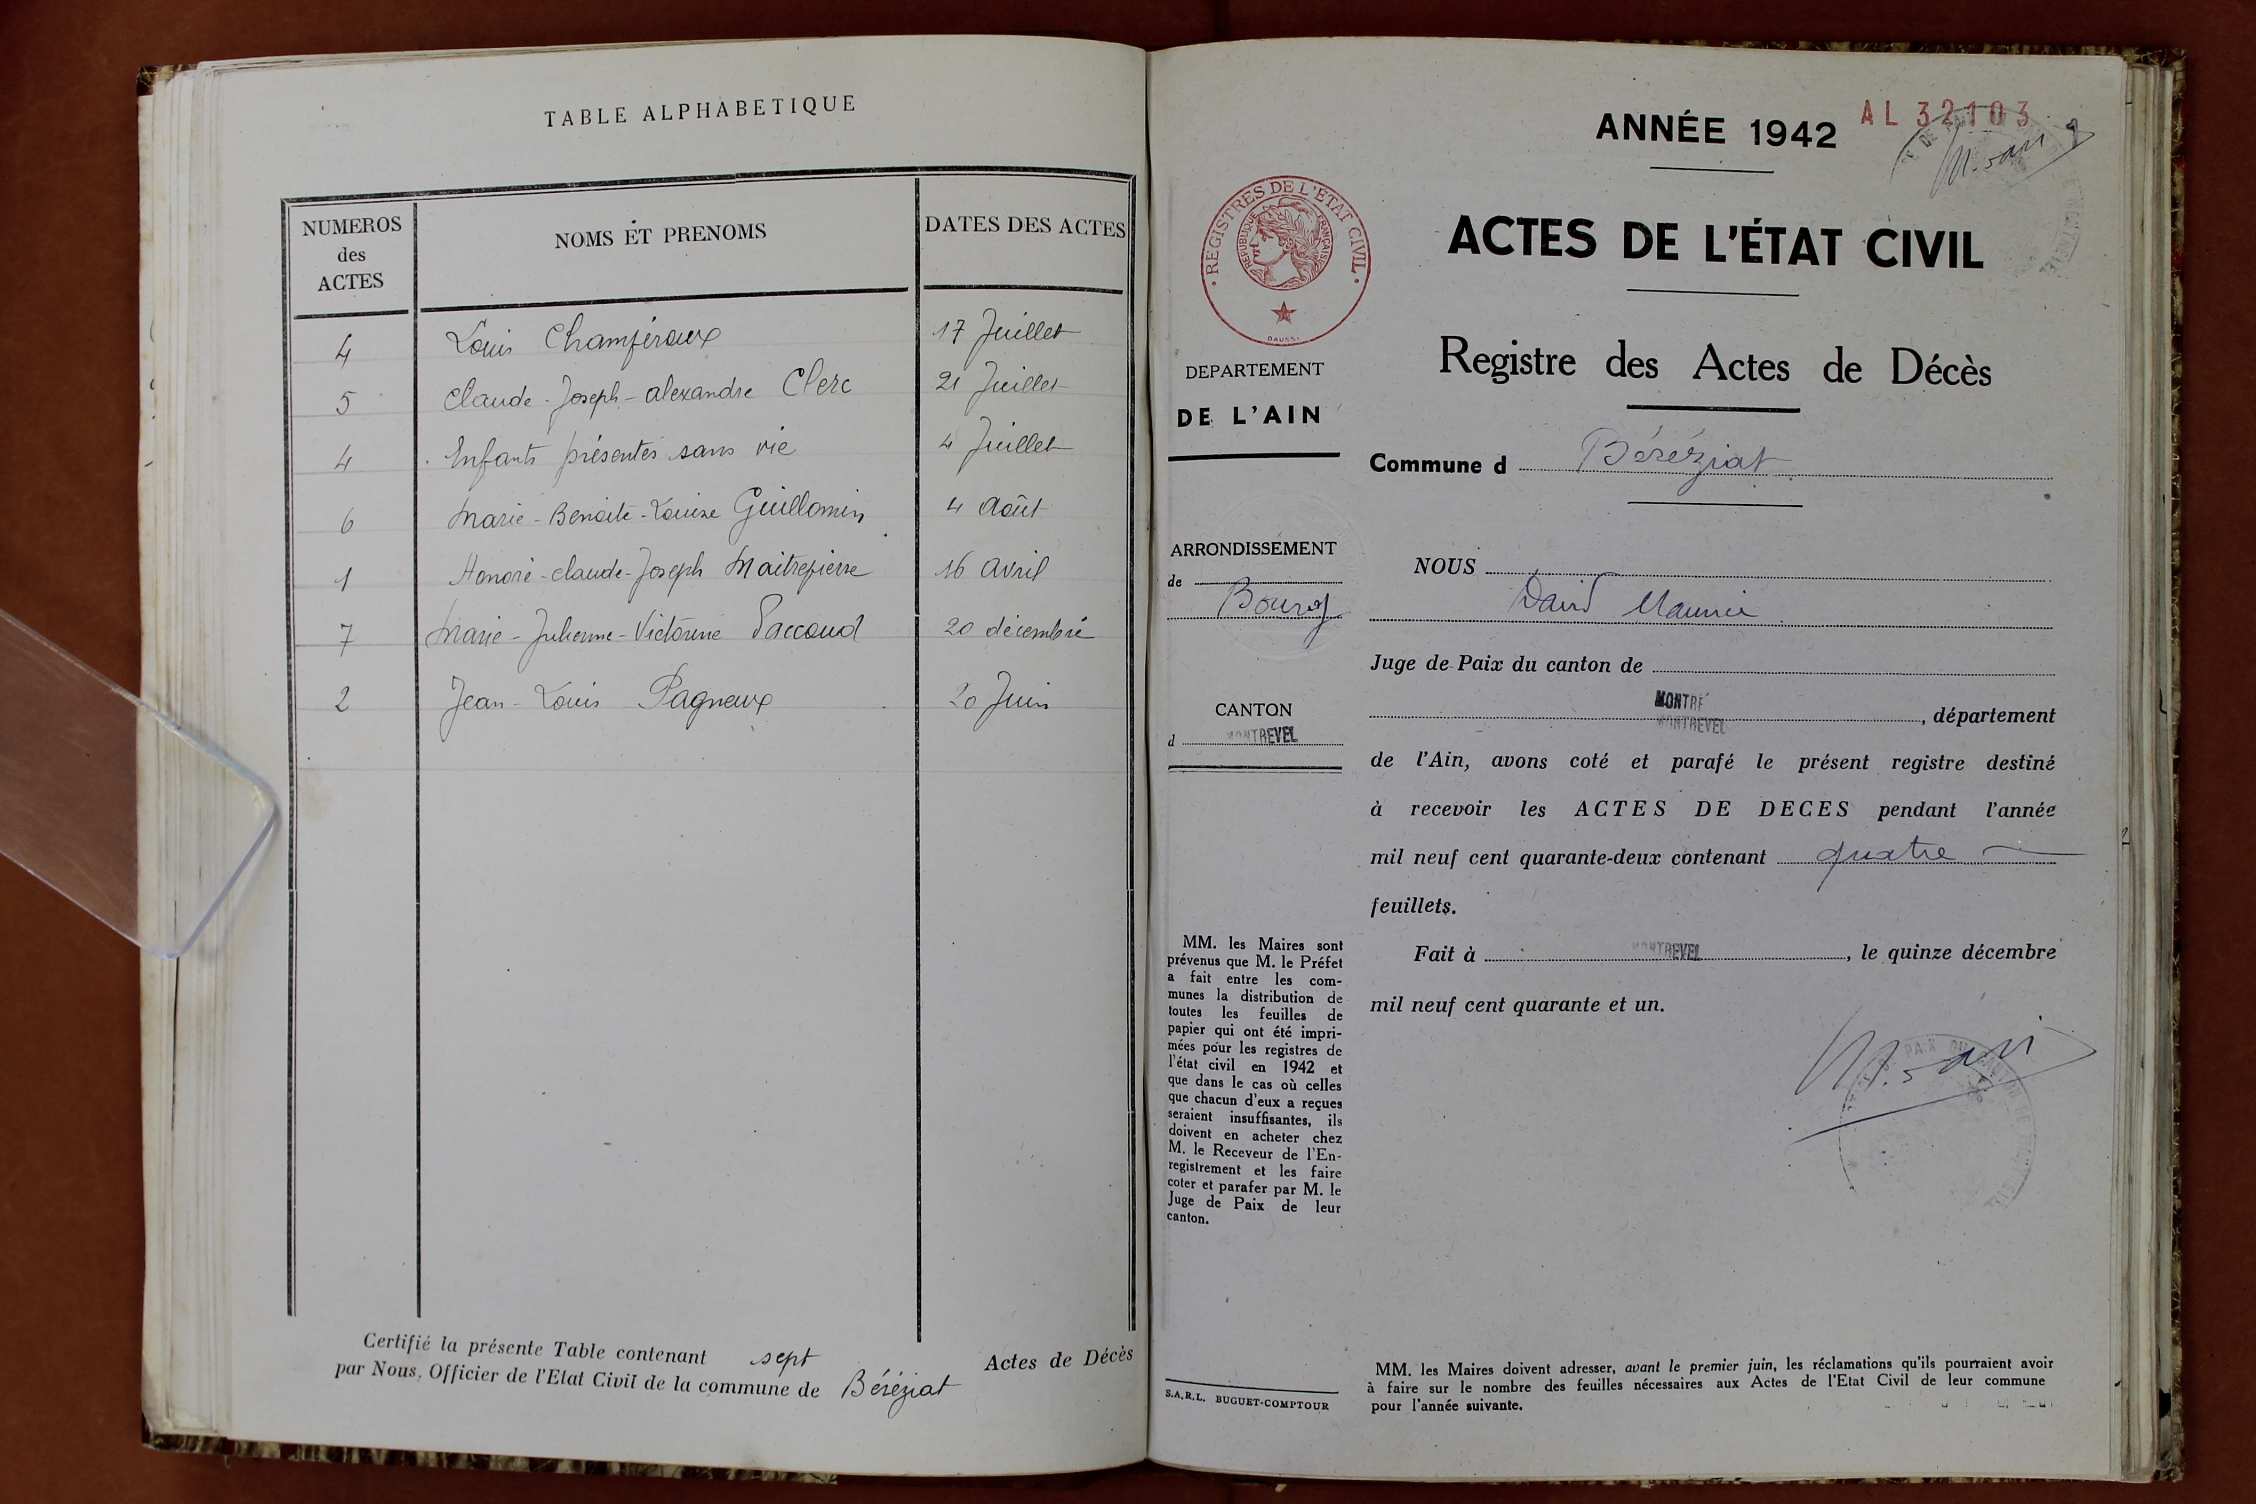 TABLE ALPHABETIQUE
NUMEROS
des
ACTES
NOMS ET PRENOMS
DATES DES ACTES
4 Louis Chamféroux 17 Juillet
5 Claude-Joseph-Alexandre Clerc 21 Juillet
4 Enfants présentés sans vie 4 Juillet
6 Marie-Benoite-Louise Guillomin 4 Août
1 Honoré-Claude-Joseph Maitrepierre 16 avril
7 Marie-Julienne-Victorine Paccoud 20 décembre
2 Jean-Louis Pagneux 20 Juin
Certifié la présente Table contenant sept Actes de Décès
par Nous, Officier de l'Etat Civil de la commune de Béréziat
ANNÉE 1942
AL 32103
ACTES DE L'ÉTAT CIVIL
REGISTRES DE L'ETAT CIVIL
REPUBLIQUE FRANÇAISE
DEPARTEMENT
DE L'AIN
ARRONDISSEMENT
de
Bourg
CANTON
d MONTREVEL
MM. les Maires sont
prévenus que M. le Préfet
a fait entre les com-
munes la distribution de
toutes les feuilles de
papier qui ont été impri-
mées pour les registres de
l'état civil en 1942 et
que dans le cas où celles
que chacun d'eux a reçues
seraient insuffisantes, ils
doivent en acheter chez
M. le Receveur de l'En-
registrement et les faire
coter et parafer par M. le
Juge de Paix de leur
canton.
S.A.R.L. BUGUET-COMPTOUR
Registre des Actes de Décès
Commune d Béréziat
NOUS
David Maurice
Juge de Paix du canton de
MONTRÉ
MONTREVEL, département
de l'Ain, avons coté et parafé le présent registre destiné
à recevoir les ACTES DE DECES pendant l'année
mil neuf cent quarante-deux contenant quatre
feuillets.
Fait à MONTREVEL, le quinze décembre
mil neuf cent quarante et un.
MM. les Maires doivent adresser, avant le premier juin, les réclamations qu'ils pourraient avoir
à faire sur le nombre des feuilles nécessaires aux Actes de l'Etat Civil de leur commune
pour l'année suivante.